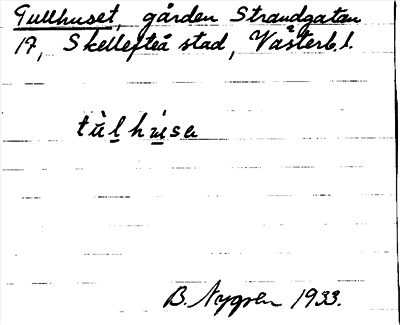 Tullhuset, gården Strandgatan
17, Skellefteå stad, Västerb. l.
tù̲l hù̲sa
B. Nygren 1933.